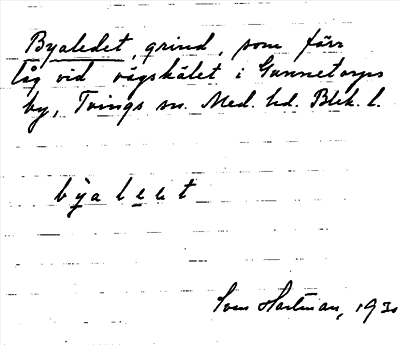 Byaledet, grind, som förr
låg vid vägskälet i Gunnetorps
by, Tvings sn. Med. hd. Blek. l.
bỳaleet
Sven Hartman, 1930